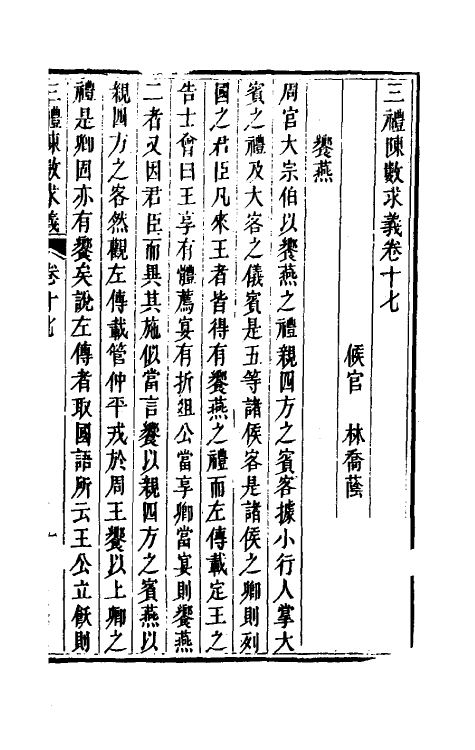 三禮陳數求義卷十七
候官　林喬蔭
饗燕
周官大宗伯以饗燕之禮親四方之賓客據小行人掌大
賓之禮及大客之儀賓是五等諸侯客是諸侯之卿則列
國之君臣凡來王者皆得有饗燕之禮而左傳載定王之
告士會曰王享有體薦宴有折俎公當享卿當宴則饗燕
二者又因君臣而異其施似當言饗以親四方之賓燕以
親四方之客然觀左傳載管仲平戎於周王饗以上卿之
禮是卿固亦有饗矣說左傳者取國語所云王公立飫則
三禮陳數求義　卷十七　一